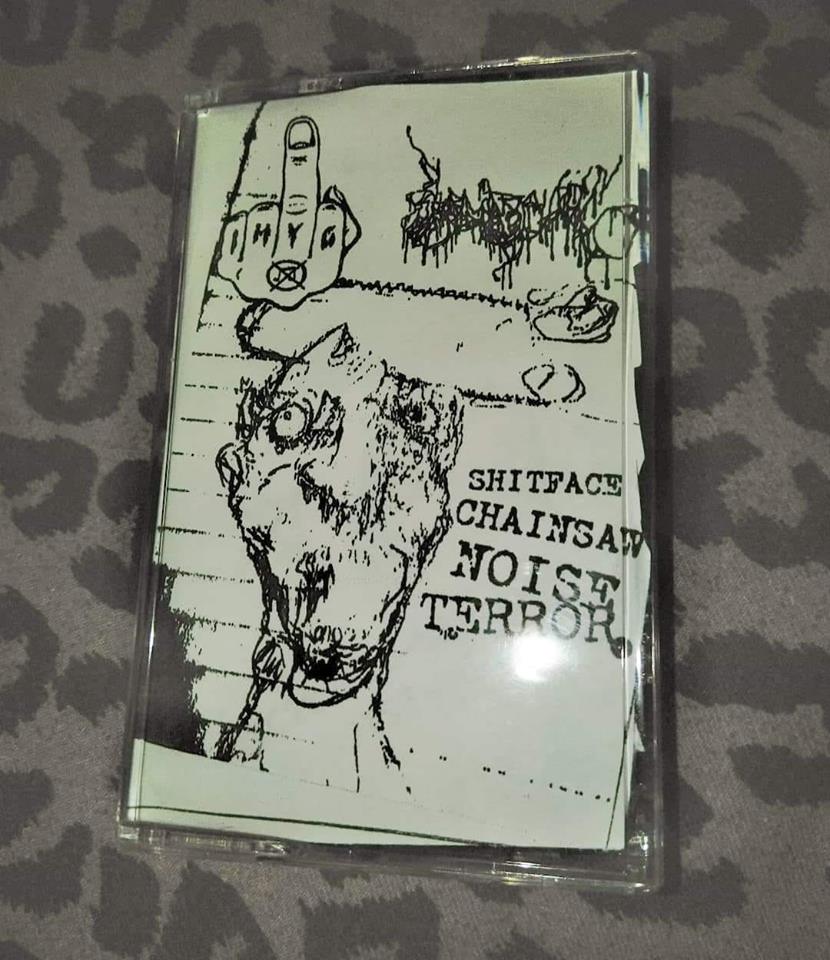 IHYG
SHITFACE
CHAINSAW
NOISE
TERROR